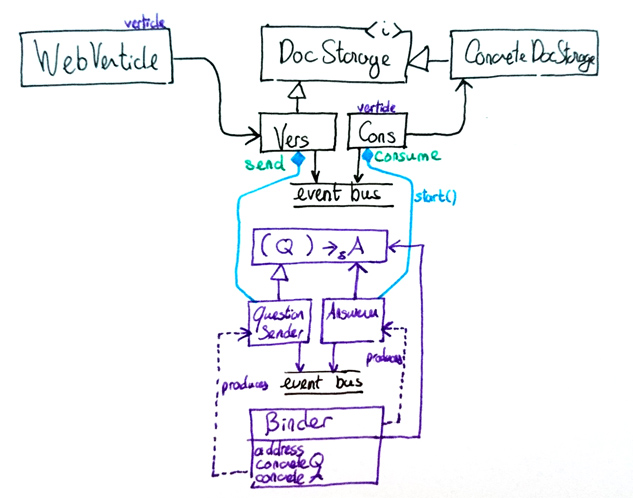 verticle
WebVerticle
<i>
DocStorage
ConcreteDocStorage
verticle
Vers
Cons
send
consume
event bus
start()
(Q) →s A
Question
Sender
Answerer
produces
produces
event bus
Binder
address
concrete Q
concrete A